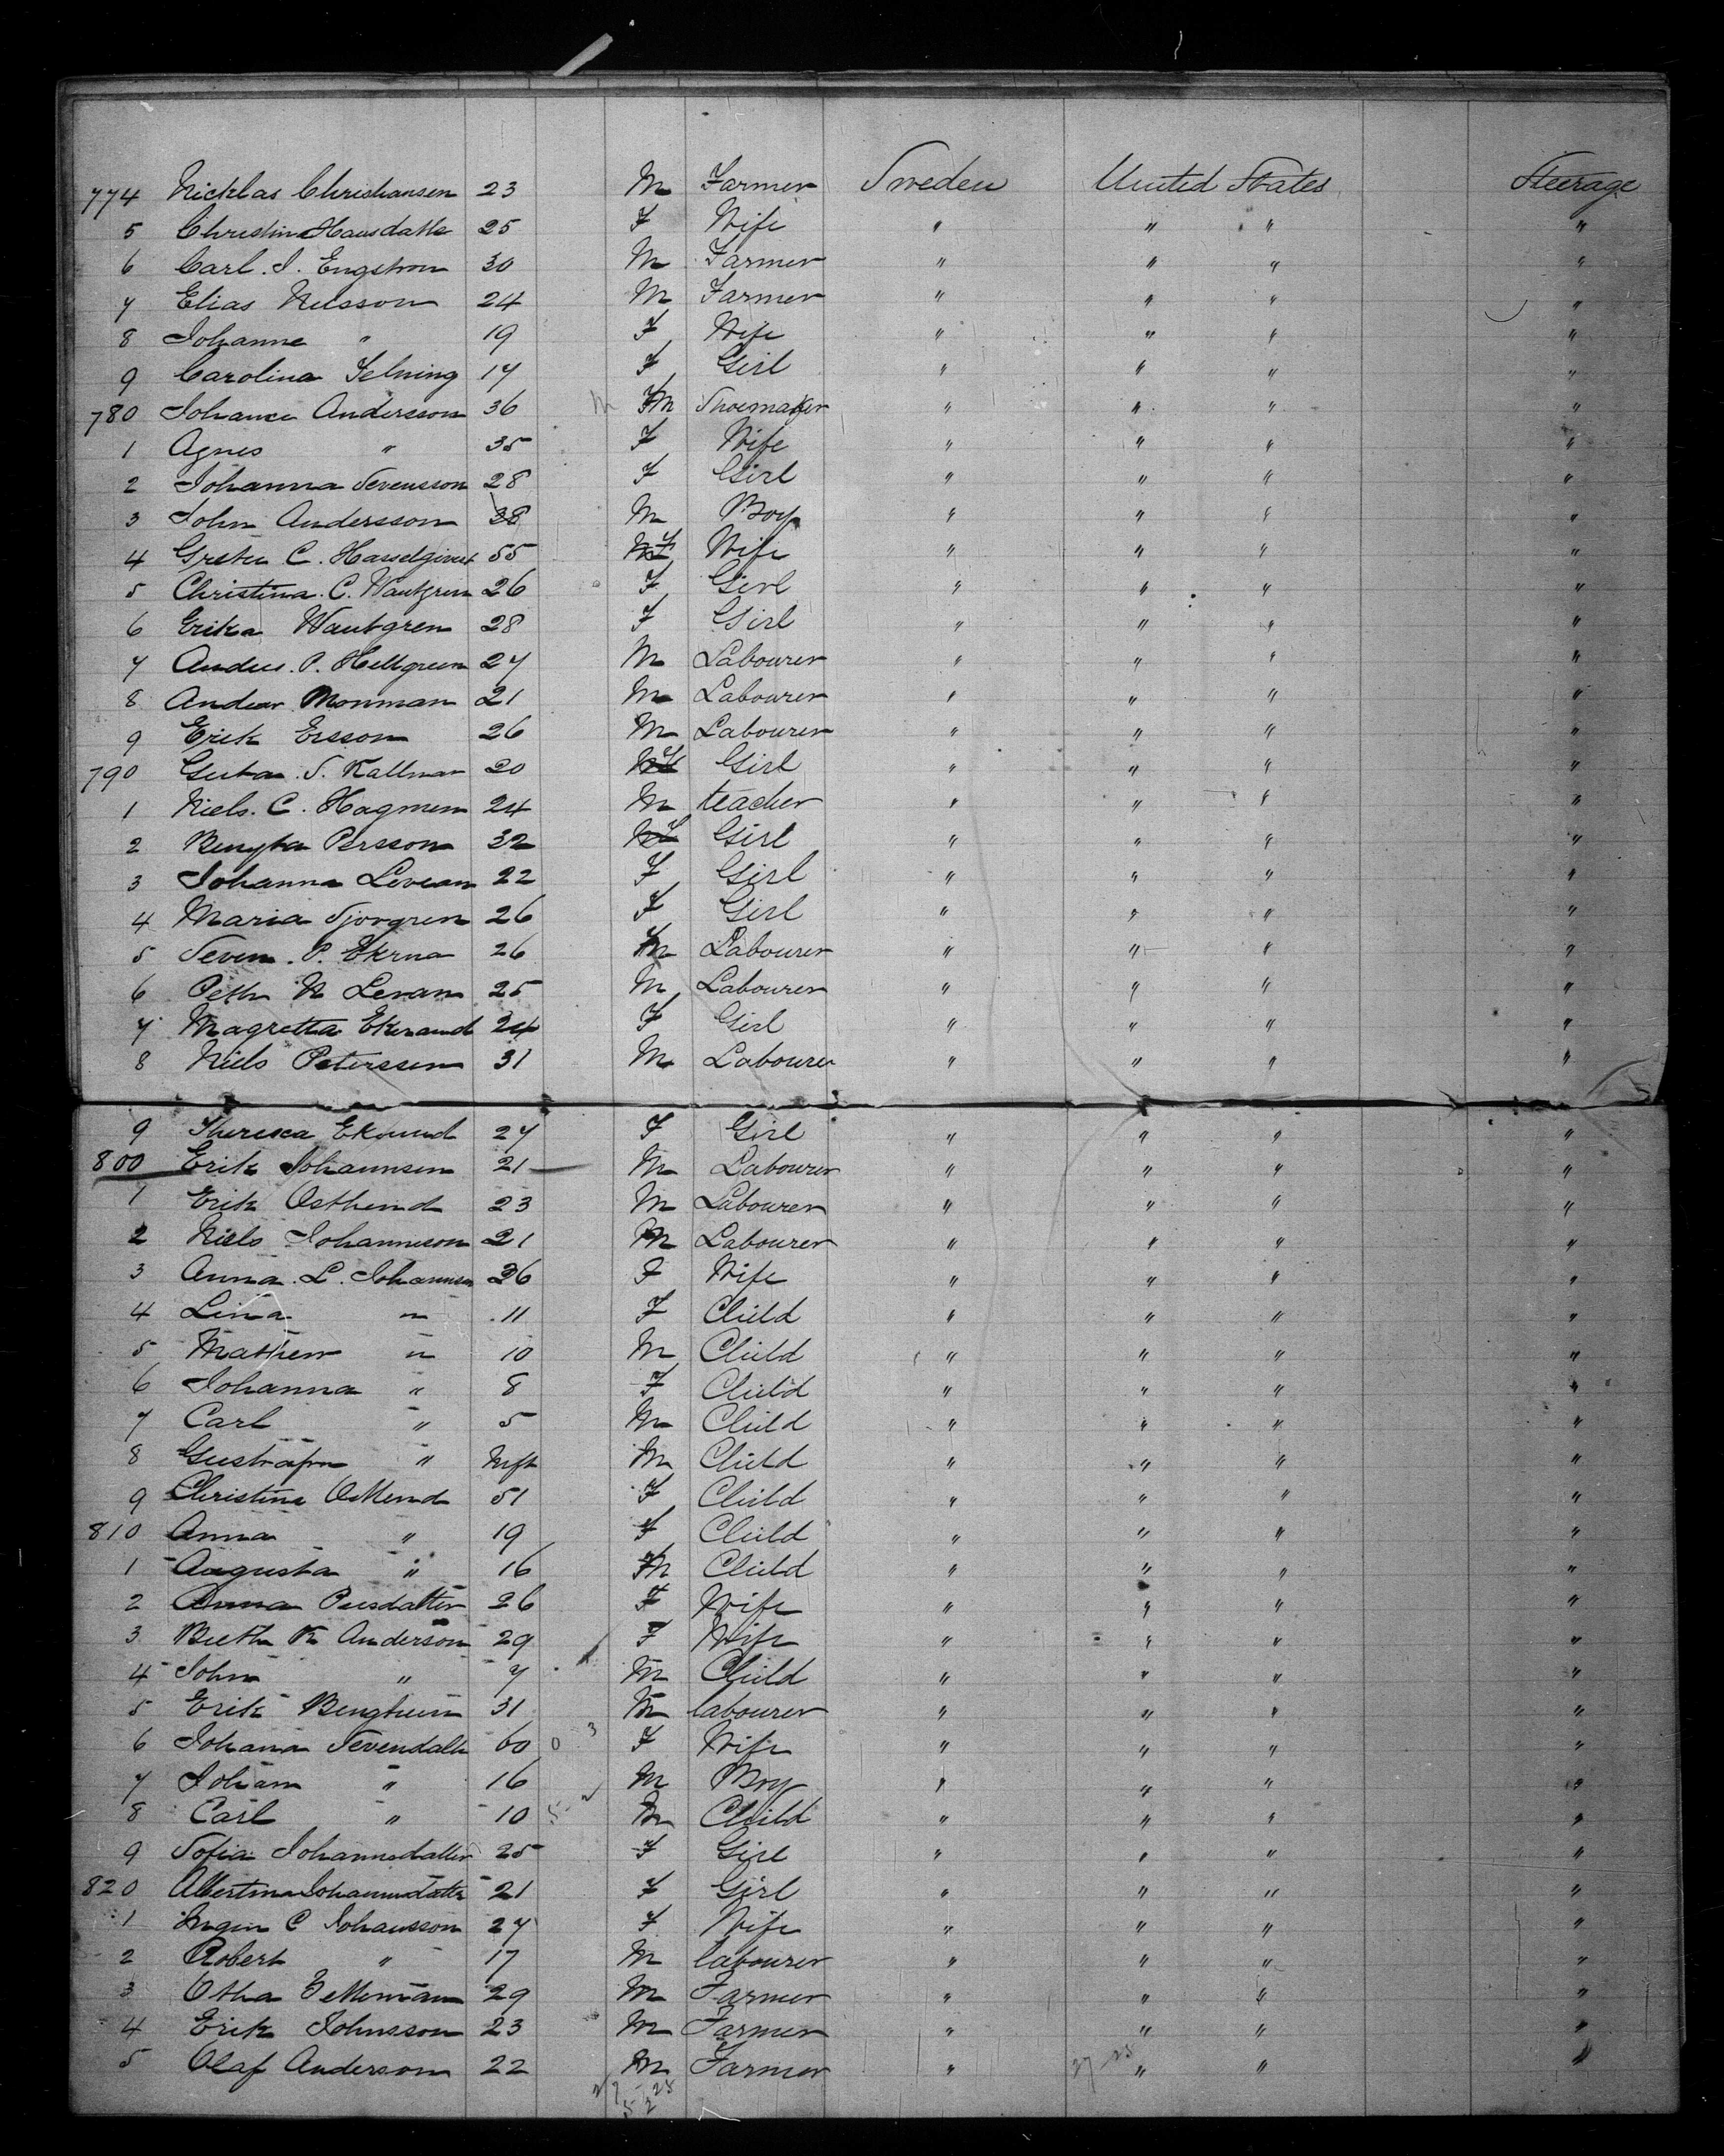 774 Nicklas Christiansen 23 M Farmer Sweden United States Steerage
5 Christina Hansdatte 25 F Wife " " " "
6 Carl. I. Engstrom 30 M Farmer " " " "
7 Elias Nilsson 24 M Farmer " " " "
8 Johanne " 19 F Wife " " " "
9 Carolina 17 F Girl " " " "
780 Johance Andersson 36 M Shoemaker " " " "
1 Agnes " 35 F Wife " " " "
2 Johanna Svensson 28 F Girl " " " "
3 John Andersson 38 M Boy " " " "
4 C. 55 F Wife " " " "
5 Christina. C. 26 F Girl " " " "
6 Erika Wantgren 28 F Girl " " " "
7 P. Hellgreen 27 M Labourer " " " "
8 Monman 21 M Labourer " " " "
9 Erik Ersson 26 M Labourer " " " "
790 S. Kallman 20 F Girl " " " "
1 Niels. C. Hagmen 24 M teacher " " " "
2 Bengta Persson 32 F Girl " " " "
3 Johanna Levean 22 F Girl " " " "
4 Maria Sjorgren 26 F Girl " " " "
5 Seven. P. Ekrna 26 M Labourer " " " "
6 N Levan 25 M Labourer " " " "
7 Magretta Ekraud 24 F Girl " " " "
8 Niels Peterssen 31 M Labourer " " " "
9 Theresea Ekound 27 F Girl " " " "
800 Erik Johannsen 21 M Labourer " " " "
1 Erik 23 M Labourer " " " "
2 Niels Johannson 21 M Labourer " " " "
3 Anna. L. Johannsen 36 F Wife " " " "
4 Lina " 11 F Child " " " "
5 Mathew " 10 M Child " " " "
6 Johanna " 8 F Child " " " "
7 Carl " 5 M Child " " " "
8 " Inft M Child " " " "
9 Christine 51 F Child " " " "
810 Anna " 19 F Child " " " "
1 Augusta " 16 Child " " " "
2 Anna Persdatter 26 F Wife " " " "
3 K Anderson 29 F Wife " " " "
4 John " 7 M Child " " " "
5 Erik 31 M labourer " " " "
6 Johana Sevendatte 60 F Wife " " " "
7 Joham " 16 M Boy " " " "
8 Carl " 10 M Child " " " "
9 Sofia Johannsdatter 25 F Girl " " " "
820 Albertina Johannsdatter 21 F Girl " " " "
1 C Johansson 27 F Wife " " " "
2 Robert " 17 M labourer " " " "
3 Otha 29 M Farmer " " " "
4 Erik Johnsson 23 M Farmer " " " "
5 Olaf Anderson 22 M Farmer " " " "